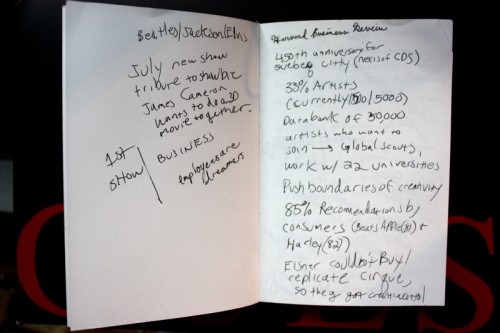 Beatles/Jackson/Elvis
July new show
tribute to showbiz
James Cameron
wants to do a 3D
movie together.
1st
show
BUSINESS
employees are
dreamers
Harvard Business Review
450th anniversary for
Quebec City (nexis of CDS)
33% Artists
(currently 1500/5000)
Databank of 50,000
artists who want to
join → global scouts,
work w/ 22 universities
Push boundaries of creativity
85% Recomendations by
consumers (Beats APPle(81) +
Harley (82))
Eisner couldn't Buy/
replicate Cirque,
so they got